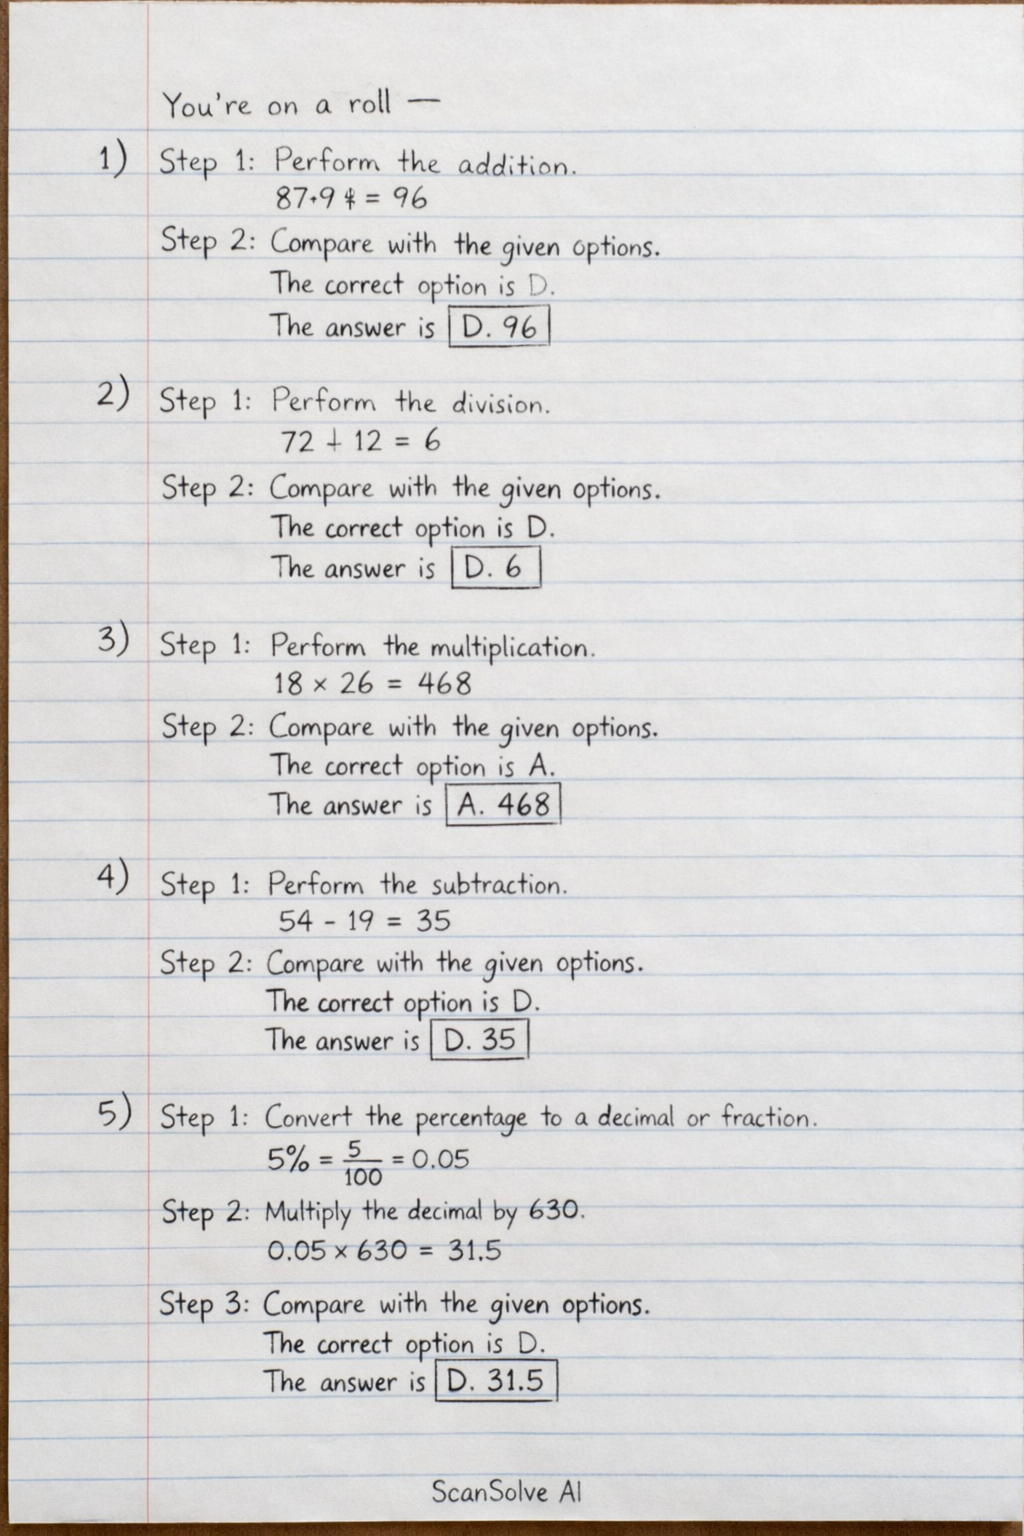 You're on a roll —
1) Step 1: Perform the addition.
87+9 = 96
Step 2: Compare with the given options.
The correct option is D.
The answer is D. 96
2) Step 1: Perform the division.
72 + 12 = 6
Step 2: Compare with the given options.
The correct option is D.
The answer is D. 6
3) Step 1: Perform the multiplication.
18 × 26 = 468
Step 2: Compare with the given options.
The correct option is A.
The answer is A. 468
4) Step 1: Perform the subtraction.
54 - 19 = 35
Step 2: Compare with the given options.
The correct option is D.
The answer is D. 35
5) Step 1: Convert the percentage to a decimal or fraction.
5% = 5/100 = 0.05
Step 2: Multiply the decimal by 630.
0.05 × 630 = 31.5
Step 3: Compare with the given options.
The correct option is D.
The answer is D. 31.5
ScanSolve AI